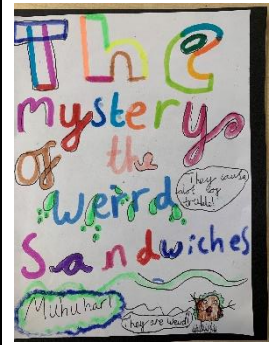 The
mystery
of the
weird
Sandwiches
They cause
alot of
Muhuhar!
They are weird!